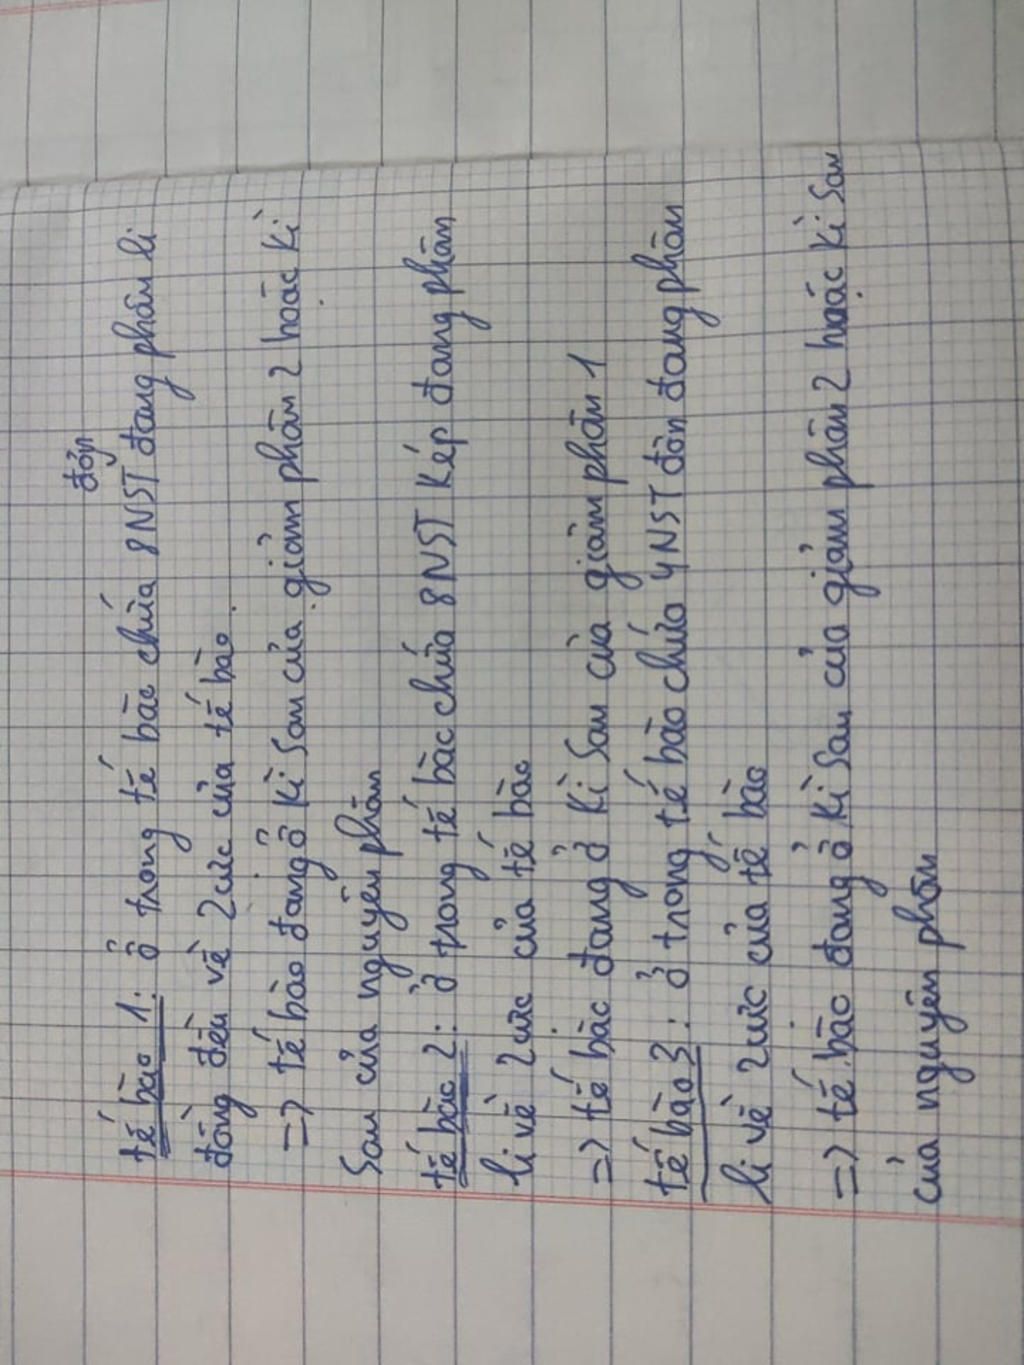 đơn
tế bào 1: ở trong tế bào chứa 8NST đang phân li
đồng đều về 2 cực của tế bào.
=> tế bào đang ở kì sau của giảm phân 2 hoặc kì
sau của nguyên phân
tế bào 2: ở trong tế bào chứa 8NST kép đang phân
li về 2 cực của tế bào
=> tế bào đang ở kì sau của giảm phân 1
tế bào 3: ở trong tế bào chứa 4NST đơn đang phân
li về 2 cực của tế bào
=> tế bào đang ở kì sau của giảm phân 2 hoặc kì sau
của nguyên phân